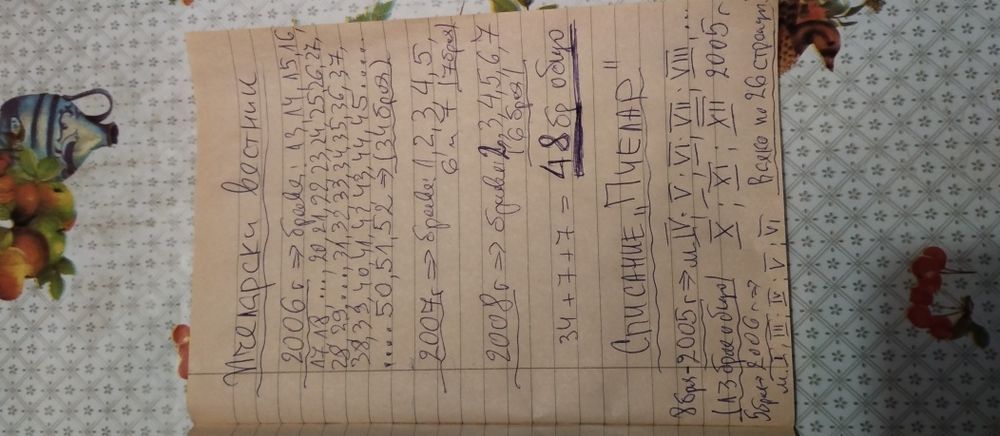 Пчеларски вестник
2006 г. ⇒ броеве: 13, 14, 15, 16,
17, 18, ..., 20, 21, 22, 23, 24, 25, 26, 27,
28, 29, ..., 31, 32, 33, 34, 35, 36, 37,
38, 39, 40, 41, 42, 43, 44, 45 ......
.... 50, 51, 52 ⇒ (34 броя)
2007 г ⇒ броеве: 1, 2, 3, 4, 5,
6 и 7 (7 броя)
2008 г ⇒ броеве: 3, 4, 5, 6, 7
34 + 7 + 7 = 48 бр общо
Списание „ПЧЕЛАР"
8 бря - 2005 г ⇒ IV, V, VI, VII, VIII, ...
(13 броя общо) X, XI, XII 2005 г
5 броя 2006 г ⇒ Всяко по 26 страници
III, IV, V, VI